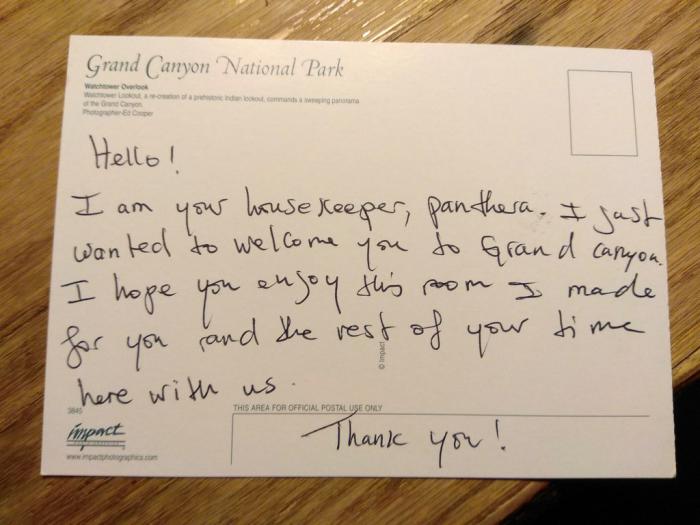 Grand Canyon National Park
Watchtower Overlook
Watchtower Lookout, a re-creation of a prehistoric Indian lookout, commands a sweeping panorama
of the Grand Canyon.
Photographer-Ed Cooper
Hello!
I am your housekeeper, panthera. I just
wanted to welcome you to Grand canyon.
I hope you enjoy this room I made
for you and the rest of your time
here with us.
© Impact
3845
THIS AREA FOR OFFICIAL POSTAL USE ONLY
impact
www.impactphotographics.com
Thank you!